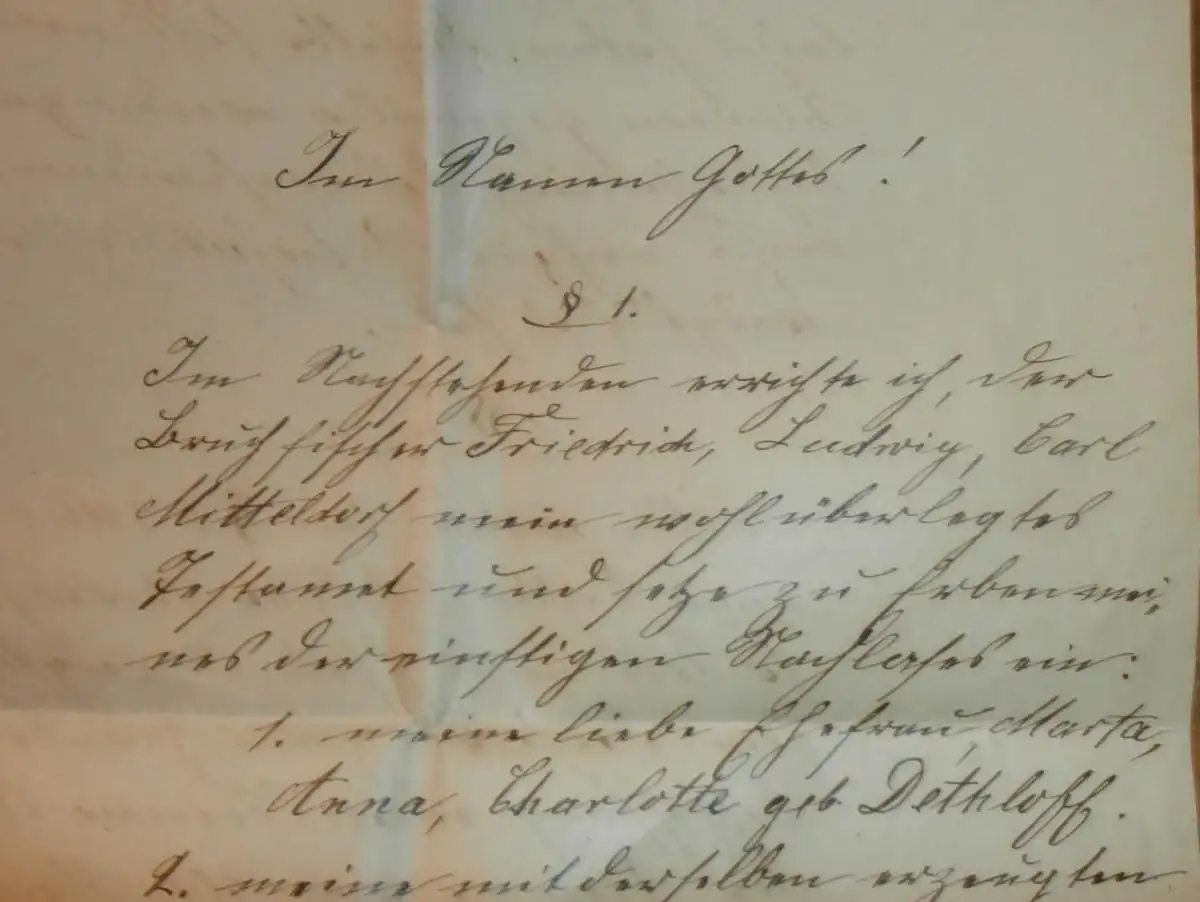 Im Namen Gottes!
§ 1.
Im Nachstehenden errichte ich, der
Bruchfischer Friedrich, Ludwig, Carl
Mitteldorf mein wohlüberlegtes
Testamet und setze zu Erben mei-
nes dereinstigen Nachlaßes ein:
1. meine liebe Ehefrau, Marta,
Anna, Charlotte geb. Dethloff.
2. meine mit derselben erzeugten